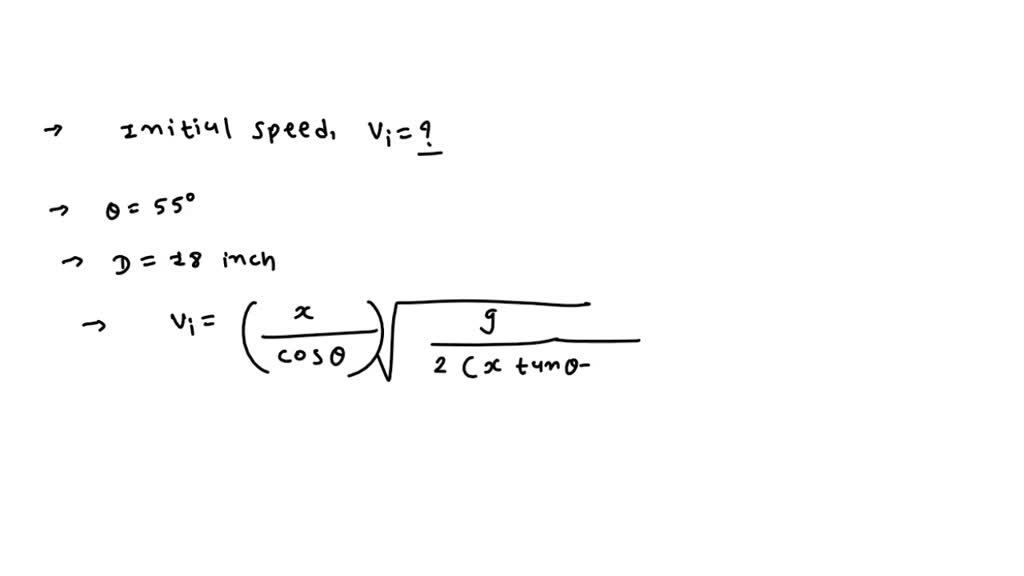 → Initial speed, vi = ?
→ θ = 55°
→ D = 18 inch
→ vi = (x / cosθ) √ g / 2 (x tanθ-